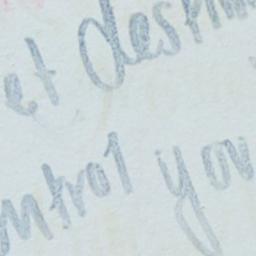 et desti
ntrol you